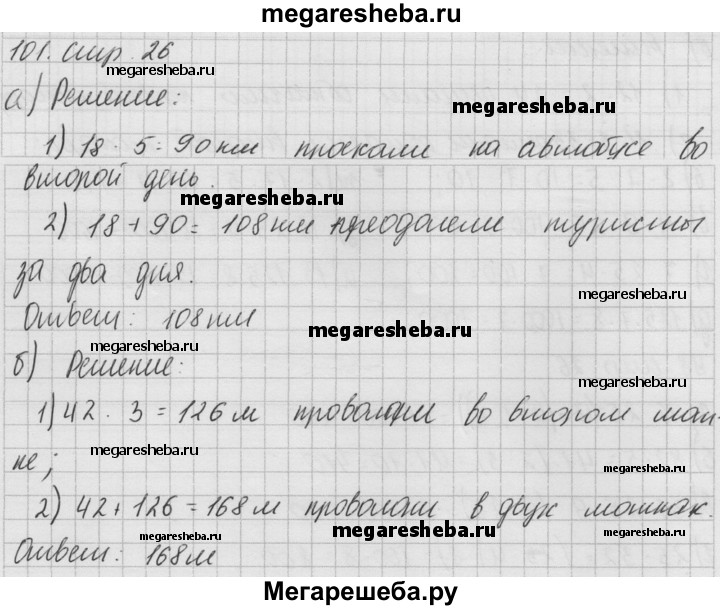 megaresheba.ru
101. стр. 26
megaresheba.ru
а) Решение:
megaresheba.ru
1) 18 · 5 = 90 км проехали на автобусе во
второй день.
megaresheba.ru
2) 18 + 90 = 108 км преодолели туристы
за два дня.
megaresheba.ru
Ответ: 108 км
megaresheba.ru
megaresheba.ru
б) Решение:
megaresheba.ru
1) 42 · 3 = 126 м проволоки во втором мот-
ке;
megaresheba.ru
megaresheba.ru
2) 42 + 126 = 168 м проволоки в двух мотках.
megaresheba.ru
Ответ: 168 м
megaresheba.ru
Мегарешеба.ру